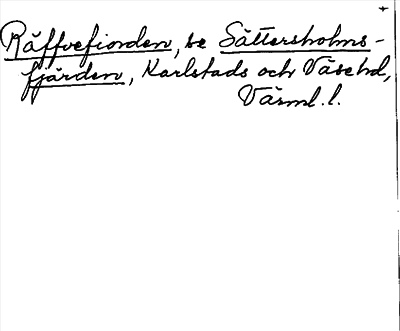 Räffvefiorden, se Sättersholms-
fjärden, Karlstads och Väse hd,
Värml. l.